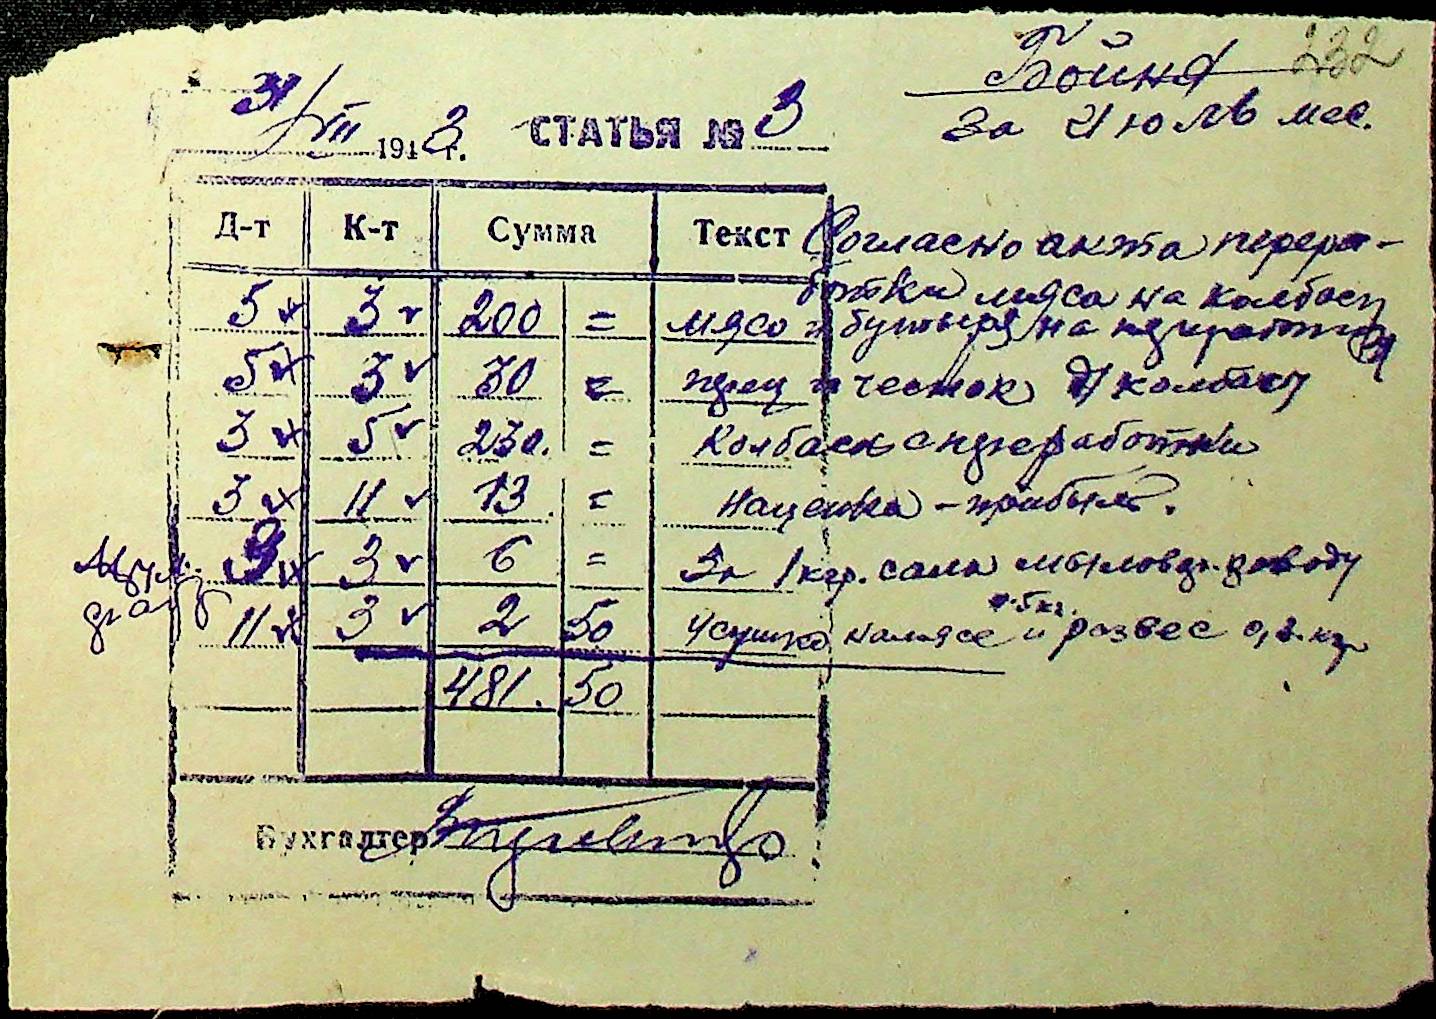 232
Бойня
за Июль мес.
31/VII 1943 г. СТАТЬЯ № 3
Д-т К-т Сумма Текст
Согласно акта перера-
ботки мяса на колбасу
5 3 200 = мясо и на
5 3 30 = перец и чеснок д/колбасы
3 5 230. = Колбаса с переработки
3 11 13 = наценка - прибыль.
9 3 6 = За 1 кгр. сала
11 3 2 50 усушка на мясе и развес 0,2 кг
481. 50
Бухгалтер